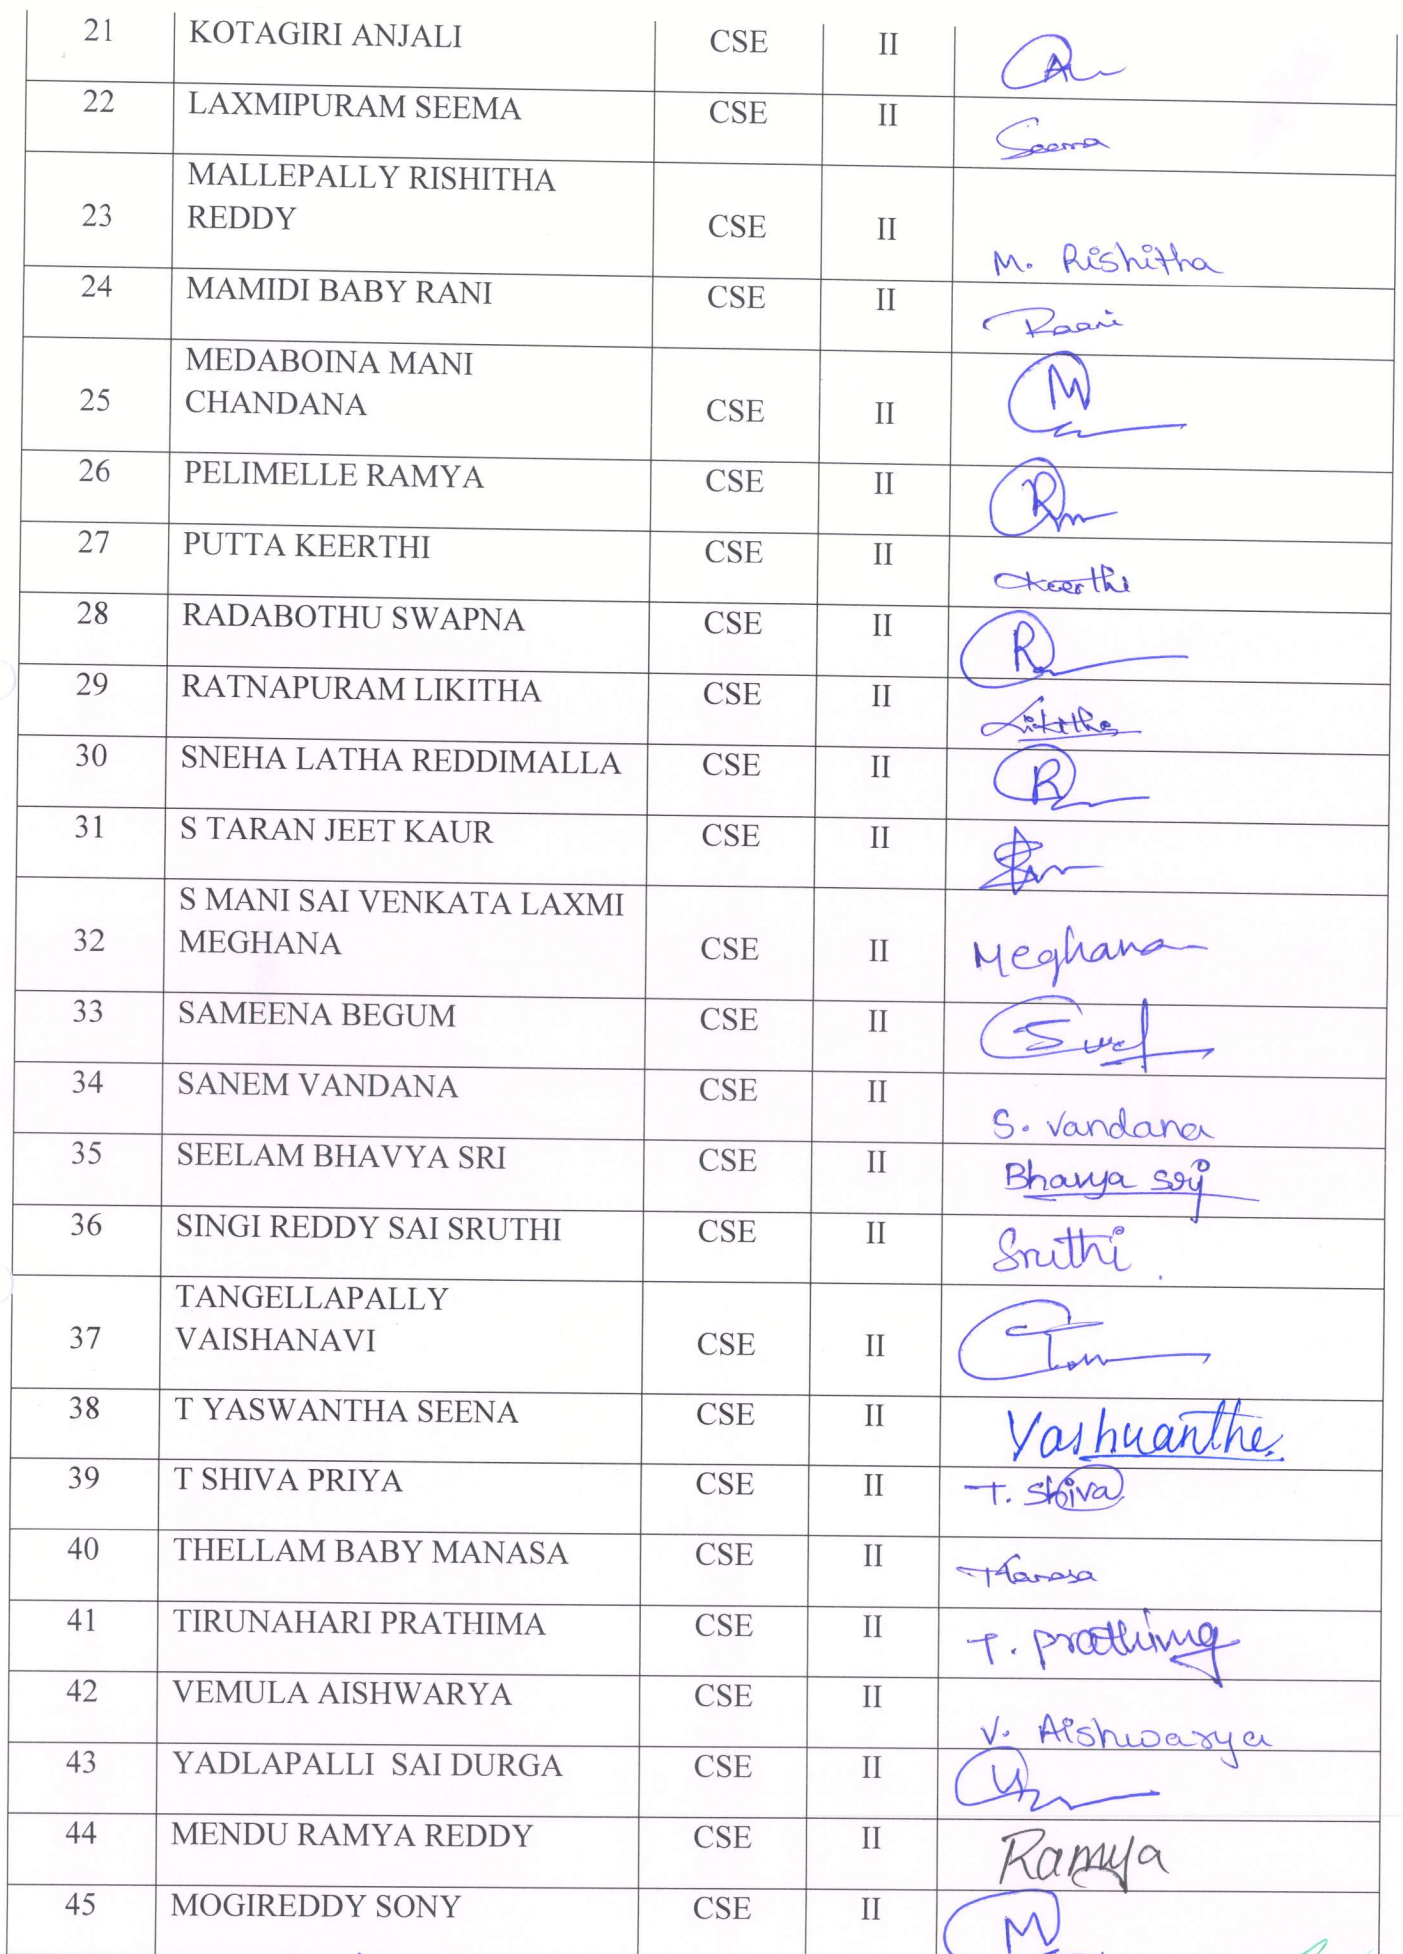 21 KOTAGIRI ANJALI CSE II
22 LAXMIPURAM SEEMA CSE II Seema
MALLEPALLY RISHITHA
23 REDDY CSE II M. Rishitha
24 MAMIDI BABY RANI CSE II Raani
MEDABOINA MANI
25 CHANDANA CSE II M
26 PELIMELLE RAMYA CSE II
27 PUTTA KEERTHI CSE II Keerthi
28 RADABOTHU SWAPNA CSE II R
29 RATNAPURAM LIKITHA CSE II Likitha
30 SNEHA LATHA REDDIMALLA CSE II R
31 S TARAN JEET KAUR CSE II
S MANI SAI VENKATA LAXMI
32 MEGHANA CSE II Meghana
33 SAMEENA BEGUM CSE II
34 SANEM VANDANA CSE II S. Vandana
35 SEELAM BHAVYA SRI CSE II Bhavya sri
36 SINGI REDDY SAI SRUTHI CSE II Sruthi
TANGELLAPALLY
37 VAISHANAVI CSE II
38 T YASWANTHA SEENA CSE II Yashwantha
39 T SHIVA PRIYA CSE II T. Shiva
40 THELLAM BABY MANASA CSE II
41 TIRUNAHARI PRATHIMA CSE II T. prathima
42 VEMULA AISHWARYA CSE II V. Aishwarya
43 YADLAPALLI SAI DURGA CSE II
44 MENDU RAMYA REDDY CSE II Ramya
45 MOGIREDDY SONY CSE II M